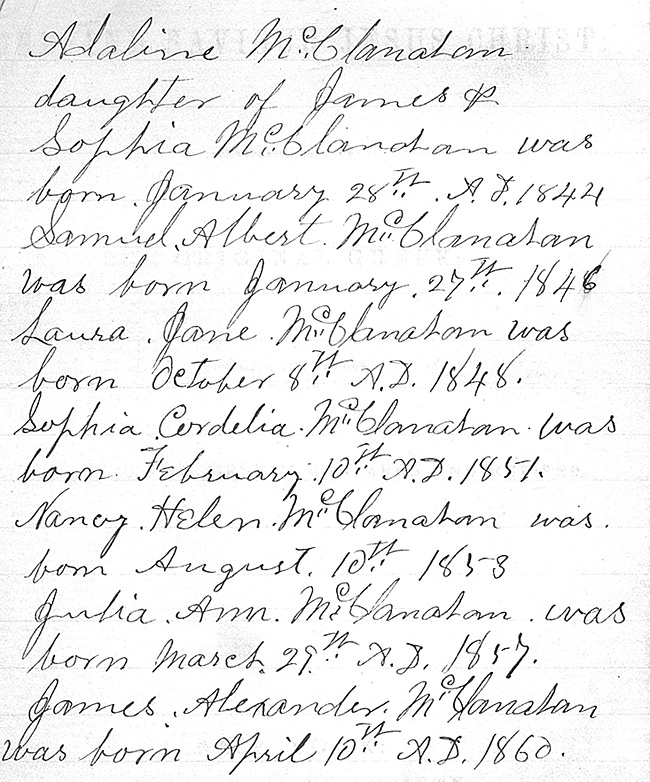 Adaline McClanahan
daughter of James &
Sophia McClanahan was
born. January 28th. A.D. 1844
Samuel. Albert. McClanahan
was born January. 27th. 1846
Laura. Jane. McClanahan was
born October 8th A.D. 1848.
Sophia. Cordelia. McClanahan. was
born. February. 10th A.D. 1851.
Nancy. Helen. McClanahan was.
born August. 10th 1853
Julia. Ann. McClanahan. was
born March. 29th A.D. 1857.
James. Alexander. McClanahan
was born April 10th A.D. 1860.